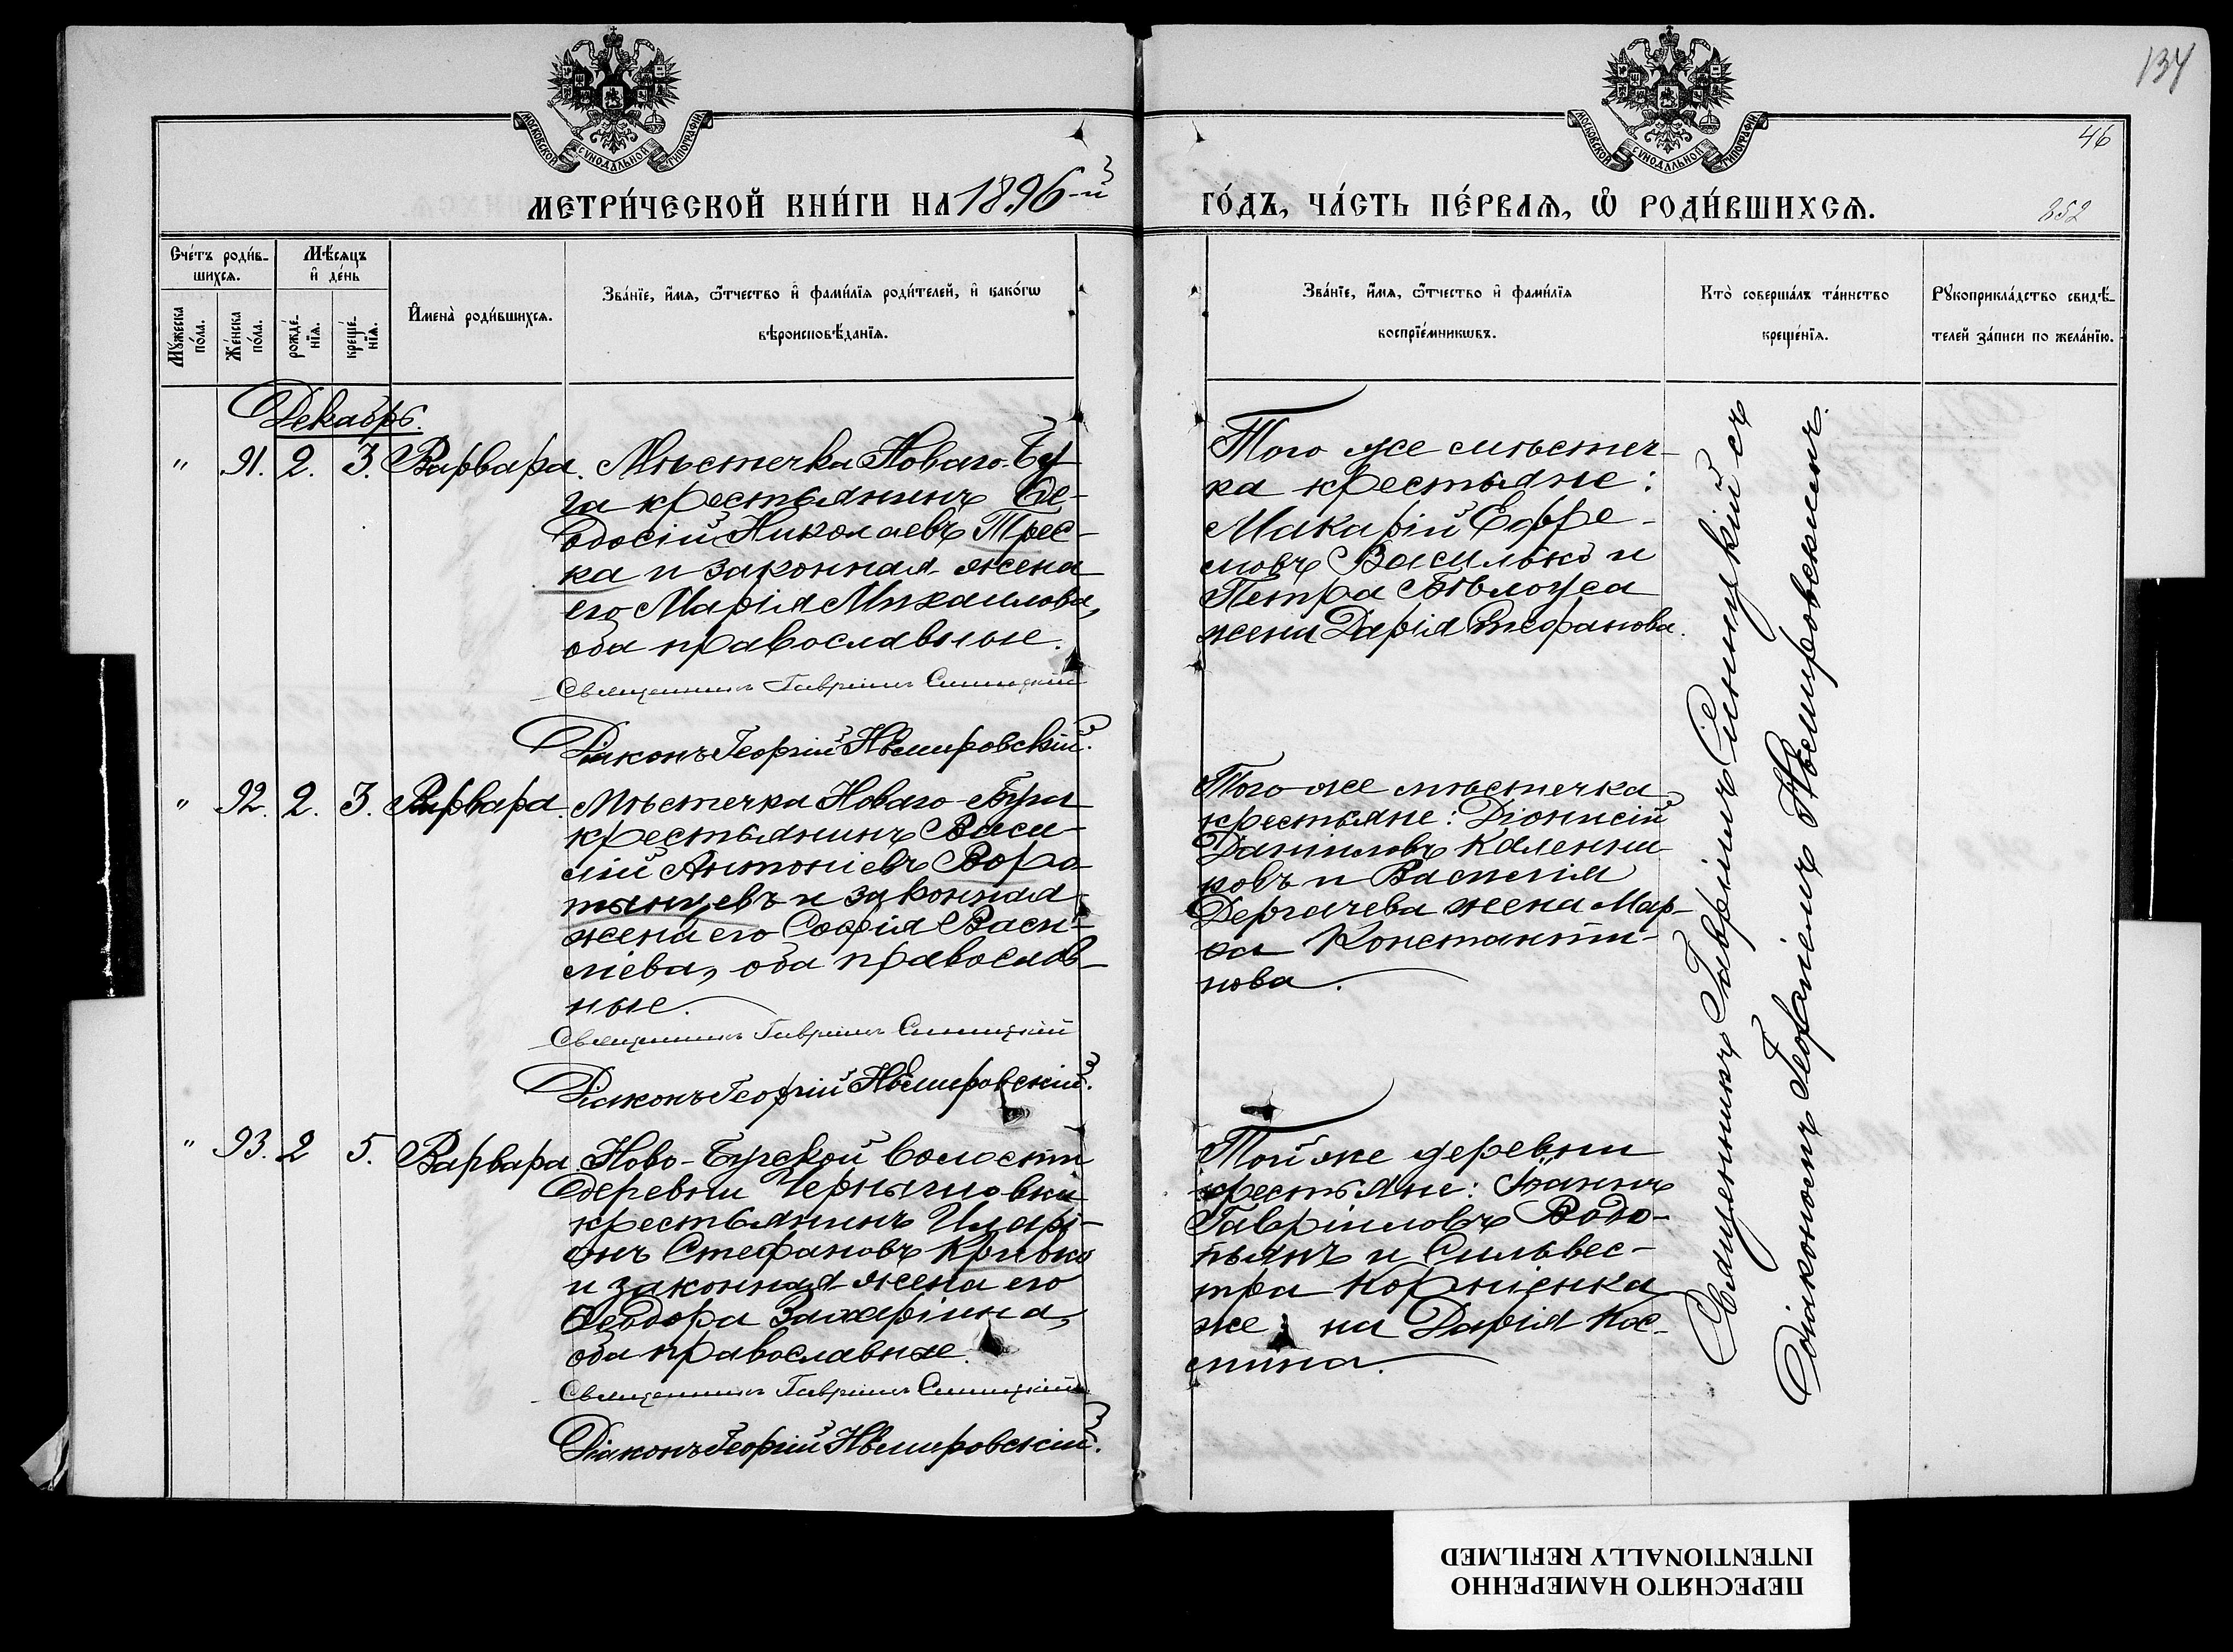 134
МОСКОВСКОЙ СѴНОДАЛЬНОЙ ТИПОГРАФІИ
МОСКОВСКОЙ СѴНОДАЛЬНОЙ ТИПОГРАФІИ
46
МЕТРИ́ЧЕСКОЙ КНИ́ГИ НА 1896-й
ГО́ДЪ, ЧА́СТЬ ПЕ́РВАѦ, Ѡ҆ РОДИ́ВШИХСѦ.
852
Сче́тъ роди́в-
шихсѧ.
Мꙋ́жеска по́ла.
Же́нска по́ла.
Мѣ́сѧцъ
и҆ де́нь
рожде́-нїѧ.
креще́-нїѧ.
И҆мена̀ роди́вшихсѧ.
Зва́нїе, и҆́мѧ, ѻ҆́тчество и҆ фами́лїѧ роди́телей, и҆ како́гѡ
вѣроисповѣ́данїѧ.
Зва́нїе, и҆́мѧ, ѻ҆́тчество и҆ фами́лїѧ
воспрїе́мникѡвъ.
Кто̀ соверша́лъ та́инство
креще́нїѧ.
Рꙋкоприкла́дство свидѣ́-
телей за́писи по жела́нїю.
Декабрь.
" 91. 2. 3. Варвара. Мѣстечка Новаго-Бу-
га крестьянинъ Ѳе-
одосій Николаевъ Трес-
ка и законная жена
его Марія Михаилова,
оба православные.
Священникъ Гавріилъ Синицкій
Діаконъ Георгій Нѣмировскій.
Того же мѣстеч-
ка крестьяне:
Макарій Ефре-
мовъ Василько и
Петра Бѣлоуса
жена Дарія Стефанова.
" 92. 2. 3. Варвара. Мѣстечка Новаго-Буга
крестьянинъ Васи-
лій Антоніевъ Воро-
тынцевъ и законная
жена его Софія Васи-
ліева, оба православ-
ные.
Священникъ Гавріилъ Синицкій
Діаконъ Георгій Нѣмировскій.
Того-же мѣстечка
крестьяне: Діонисій
Даніиловъ Каленни-
ковъ и Василія
Дергачева жена Мар-
ѳа Константи-
нова.
" 93. 2 5. Варвара. Ново-Бугской волости
деревни Черныговки
крестьянинъ Иларі-
онъ Стефановъ Кривко
и законная жена его
Ѳеодора Захаріина,
оба православные.
Священникъ Гавріилъ Синицкій
Діаконъ Георгій Нѣмировскій.
Той же деревни
крестьяне: Іоаннъ
Гавріиловъ Водо-
пьянъ и Сильвес-
тра Корніенка
жена Дарія Кос-
мина.
Священникъ Гавріилъ Синицкій съ
діакономъ Георгіемъ Нѣмировскимъ.
ПЕРЕСНЯТО НАМЕРЕННО
INTENTIONALLY REFILMED